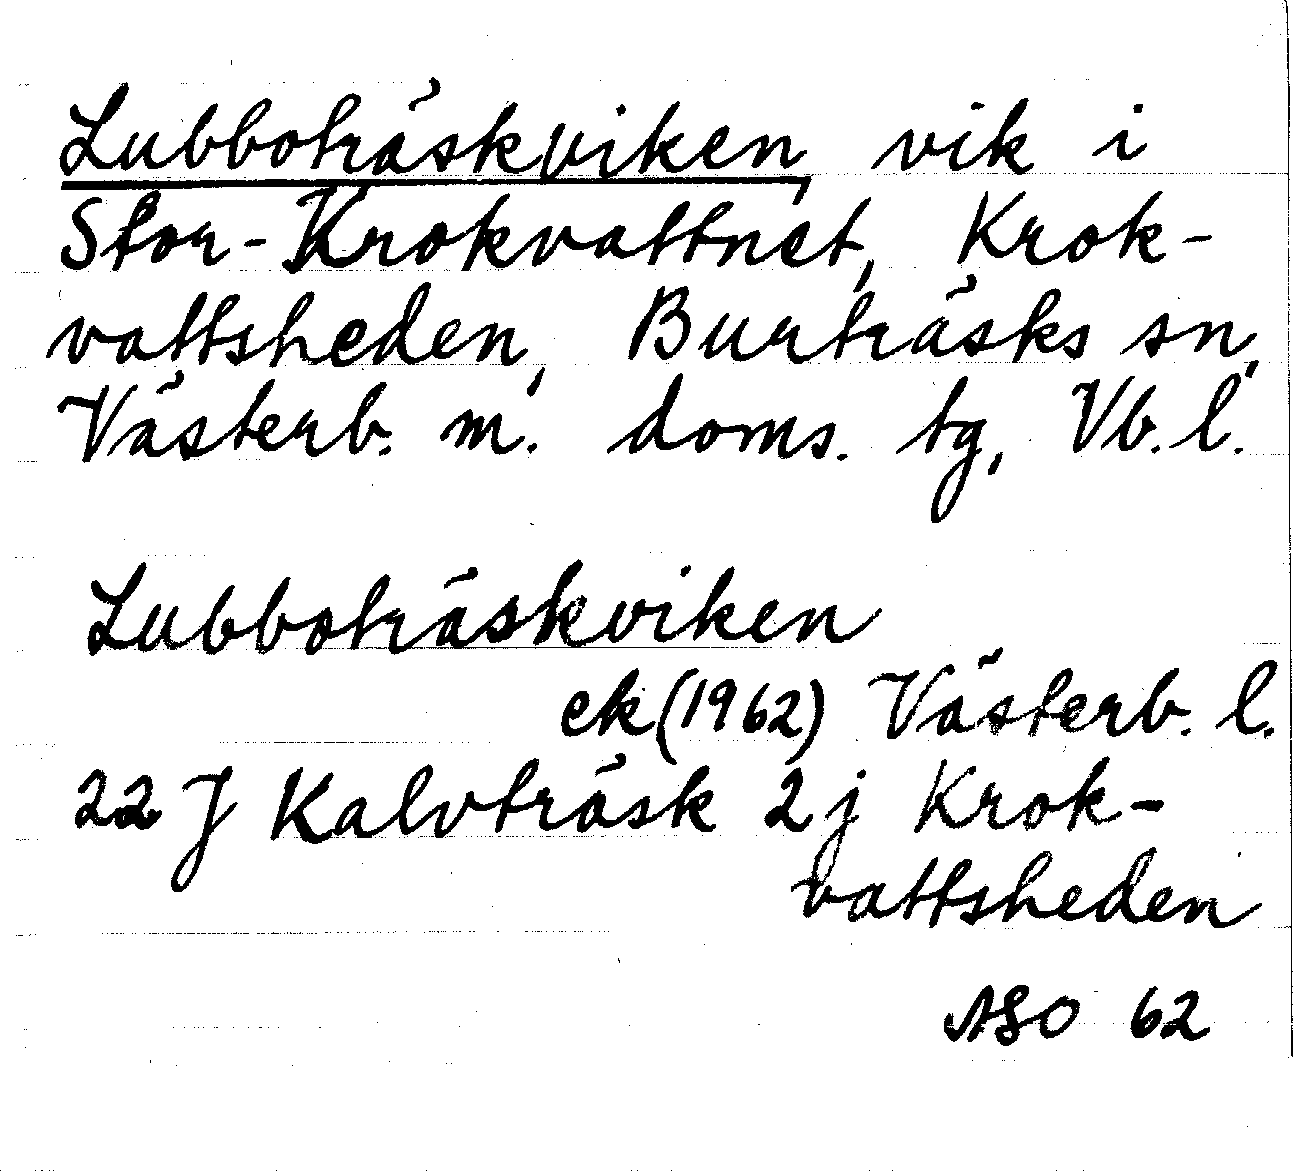 Lubboträskviken, vik i
Stor-Krokvattnet, Krok-
vattsheden, Burträsks sn,
Västerb. m. doms. tg, Vb. l.
Lubboträskviken
ek (1962) Västerb. l.
22 J Kalvträsk 2j Krok-
vattsheden
ASO 62